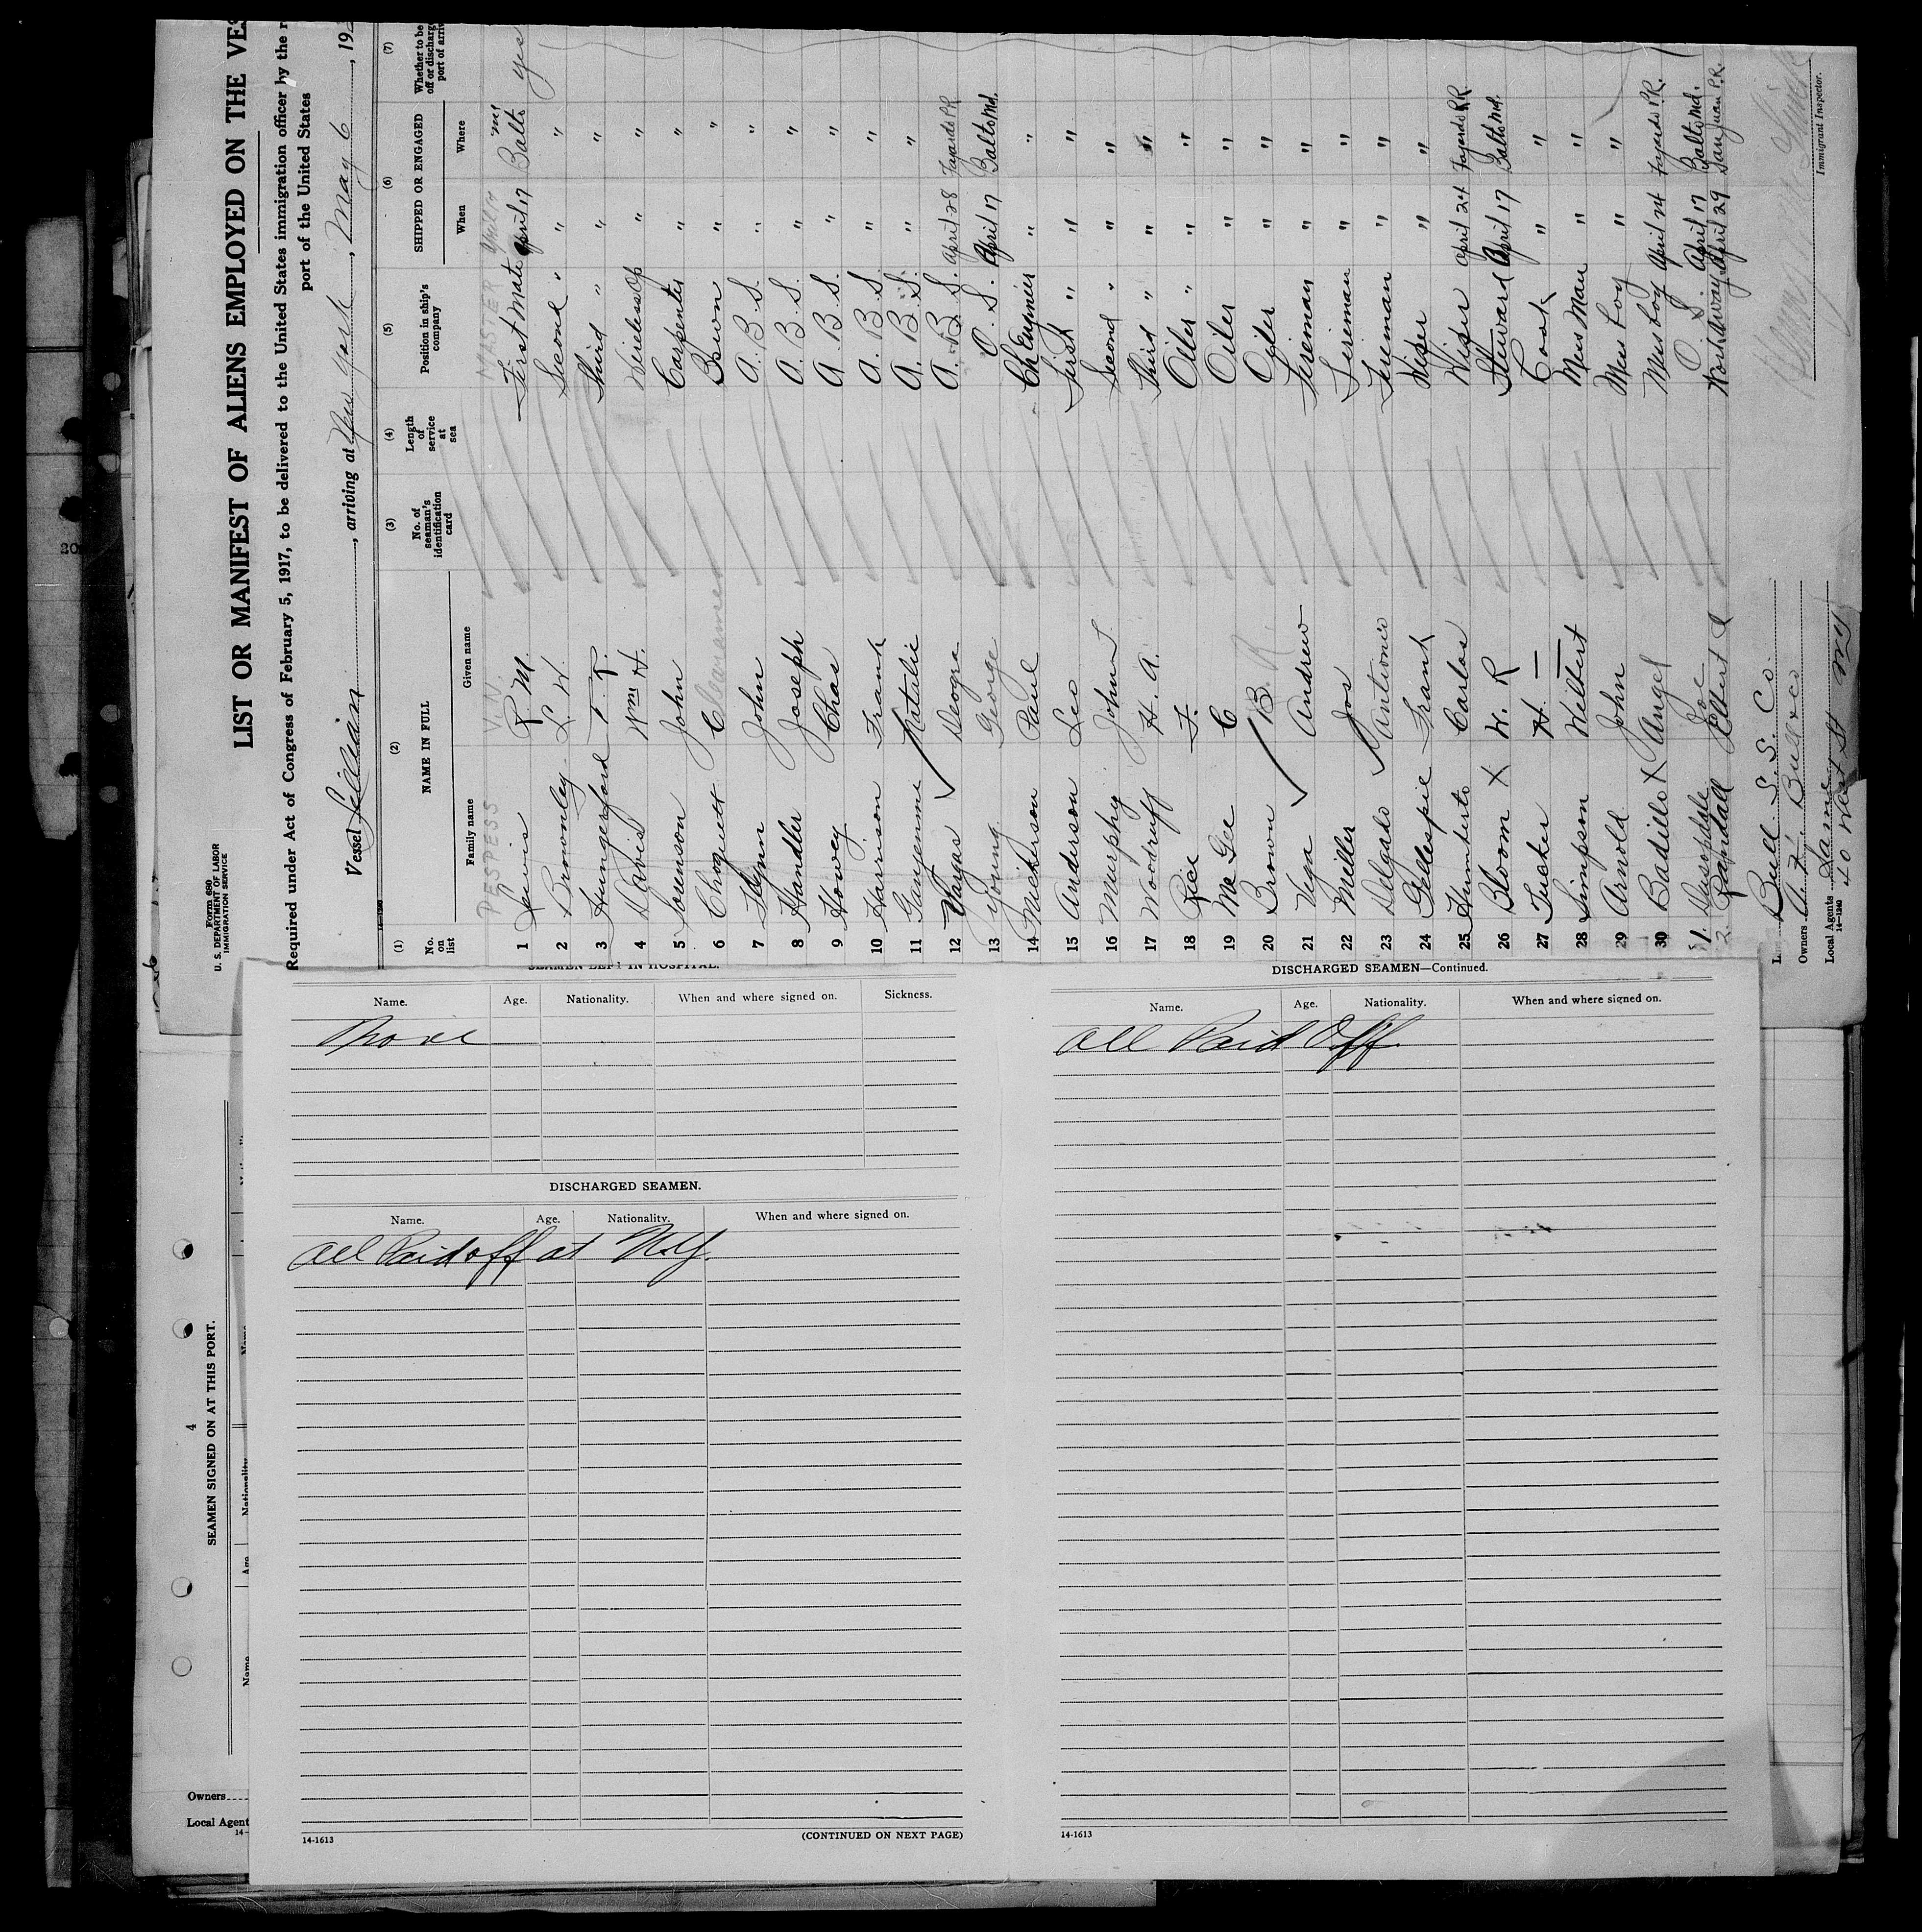 Form 680
U. S. DEPARTMENT OF LABOR
IMMIGRATION SERVICE
LIST OR MANIFEST OF ALIENS EMPLOYED ON THE VES
Required under Act of Congress of February 5, 1917, to be delivered to the United States immigration officer by the r
port of the United States
Vessel Lillian, arriving at New York, May 6, 192
(1) (2) (3) (4) (5) (6) (7)
No. on list NAME IN FULL No. of seaman's identification card Length of service at sea Position in ship's company SHIPPED OR ENGAGED Whether to be off or discharg port of arriv
Family name Given name When Where
PESPESS V. N. MASTER
1 Lewis R. M. First Mate April 17 Balto Md yes
2 Brownley L. W. Second " " "
3 Hungerford T. T. Third " " "
4 Davis Wm H. Wireless Op " "
5 Sorenson John Carpenter " "
6 C Bosun " "
7 Flynn John A. B. S. " "
8 Handler Joseph A. B. S. " "
9 Howey Chas A. B. S. " "
10 Harrison Frank A. B. S. " "
11 Natalie A. B. S. " "
12 Vargas Deogra A. B. S. April 28 Fajardo P.R.
13 Young George O. S. April 17 Balto Md.
14 Nickerson Paul Ch Engineer " "
15 Anderson Leo First " " "
16 Murphy John L. Second " " "
17 Woodruff H. A. Third " " "
18 Rice F. Oiler " "
19 McGee C Oiler " "
20 Brown B. R. Oiler " "
21 Vega Andrew Fireman " "
22 Miller Jos Fireman " "
23 Delgado Antonio Fireman " "
24 Gillespie Frank Wiper " "
25 Humberto Carlos Wiper April 24 Fajardo P.R.
26 Bloom X W. R Steward April 17 Balto Md.
27 Tucker H. — Cook " "
28 Simpson Wilbert Mess Man " "
29 Arnold John Mess boy " "
30 Badillo X Angel Mess boy April 24 Fajardo P.R.
31. Joe O. S. April 17 Balto Md.
2. Randall Elbert Workaway April 29 San Juan P.R.
Bull S. S. Co.
Owners A. H. Bull & Co
Local Agents Same
14—1240
40 West St NY
Immigrant Inspector.
SEAMEN LEFT IN HOSPITAL.
Name. Age. Nationality. When and where signed on. Sickness.
None
DISCHARGED SEAMEN.
Name. Age. Nationality. When and where signed on.
All Paid off at N.Y.
14-1613
(CONTINUED ON NEXT PAGE)
DISCHARGED SEAMEN—Continued.
Name. Age. Nationality. When and where signed on.
All Paid Off.
14-1613
4
SEAMEN SIGNED ON AT THIS PORT.
Name Age Nationality Name
Owners
Local Agent
14-
20